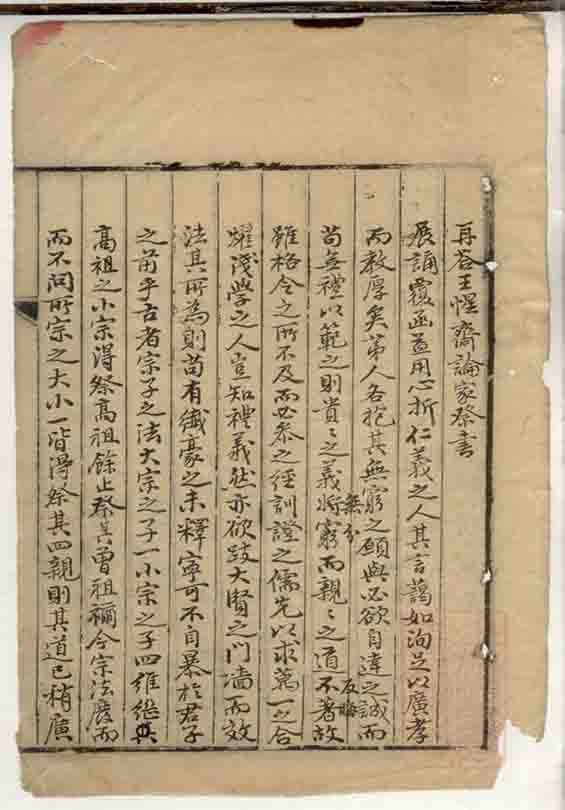 再答王惺齋論家祭書
展誦覆函益用心折仁義之人其言藹如洵足以廣孝
而教厚矣第人各抱其無窮之願與必欲自達之誠而
苟無禮以範之則貴〻之義將無分窮而親〻之道反晦不著故
雖格令之所不及而必參之經訓證之儒先以求萬一之合
燿淺學之人豈知禮義然亦欲跂大賢之門墻而效
法其所為則苟有纖豪之未釋寧可不自暴於君子
之前乎古者宗子之法大宗之子一小宗之子四維繼其
高祖之小宗得祭高祖餘止祭其曾祖禰今宗法廢而
而不問所宗之大小一皆得祭其四親則其道已稍廣